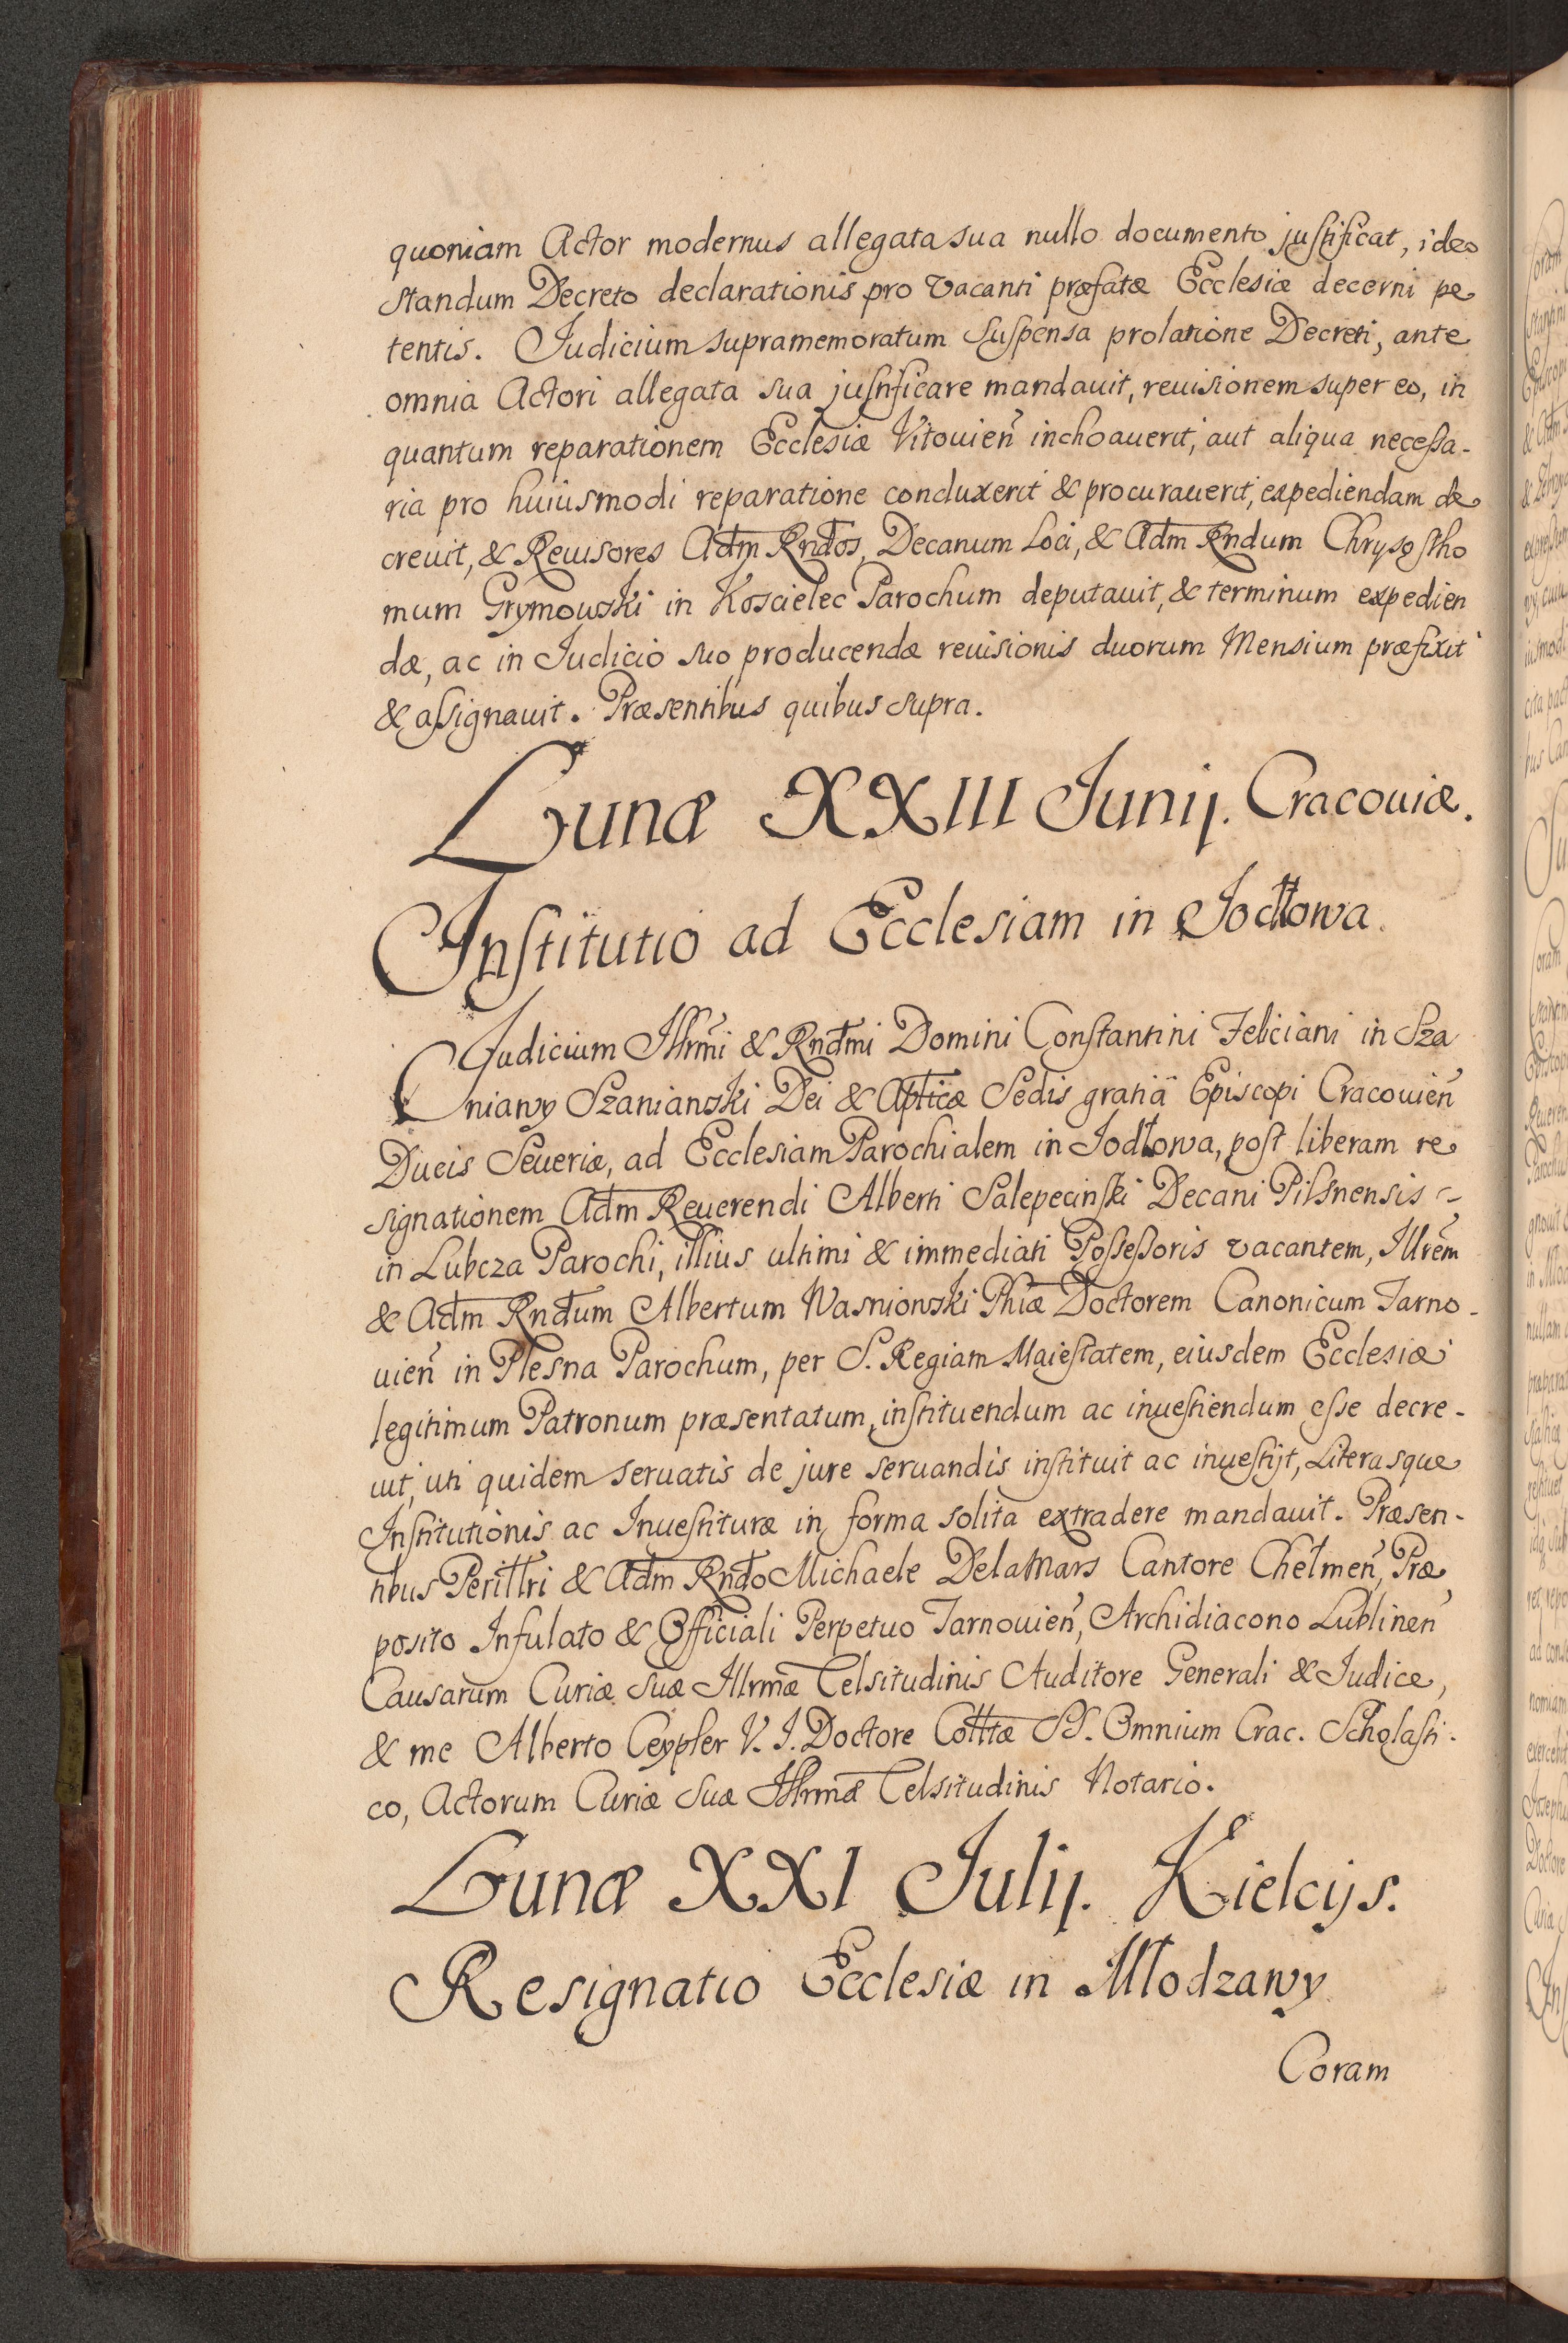 quoniam Actor modernus allegata sua nullo documento justificat, ideo
standum Decreto declarationis pro vacanti præfatæ Ecclesiæ decerni pe
tentis. Judicium supramemoratum suspensa prolatione Decreti, ante
omnia Actori allegata sua justificare mandauit, reuisionem super eo, in
quantum reparationem Ecclesiæ Vitouieñ inchoauerit, aut aliqua necessa-
ria pro huiusmodi reparatione concluxerit & procurauerit, expediendam de
creuit, & Reuisores Adm Rndos, Decanum Loci, & Adm Rndum Chrysostho
mum Grymowski in Koscielec Parochum deputauit, & terminum expedien
dæ, ac in Judicio suo producendæ reuisionis duorum Mensium præfixit
& assignauit. Præsentibus quibus supra.
Lunæ XXIII Junij. Cracouiæ.
Institutio ad Ecclesiam in Jodłowa.
Judicium Illrmi & Rndmi Domini Constantini Feliciani in Sza
niawy Szaniawski Dei & Aplicæ Sedis gratiä Episcopi Cracouieñ
Ducis Seueriæ, ad Ecclesiam Parochialem in Jodłowa, post liberam re
signationem Adm Reuerendi Alberti Salepecinski Decani Pilsnensis
in Lubcza Parochi, illius ultimi & immediati Possessoris vacantem, Illrem
& Adm Rndum Albertum Wasniowski Phiæ Doctorem Canonicum Tarno-
uieñ in Plesna Parochum, per S. Regiam Maiestatem, eiusdem Ecclesiæ
legitimum Patronum præsentatum, instituendum ac inuestiendum esse decre-
uit, uti quidem seruatis de jure seruandis instituit ac inuestijt, Literasque
Institutionis ac Inuestituræ in forma solita extradere mandauit. Præsen-
tibus Perillri & Adm Rndo Michaele DelaMars Cantore Chełmeñ, Præ
posito Infulato & Officiali Perpetuo Tarnouieñ, Archidiacono Lublineñ
Causarum Curiæ Suæ Illrmæ Celsitudinis Auditore Generali & Judice,
& me Alberto Ceypler V. J. Doctore Colltæ SS. Omnium Crac. Scholasti-
co, Actorum Curiæ Suæ Illrmæ Celsitudinis Notario.
Lunæ XXI Julij. Kielcijs.
Resignatio Ecclesiæ in Młodzawy
Coram